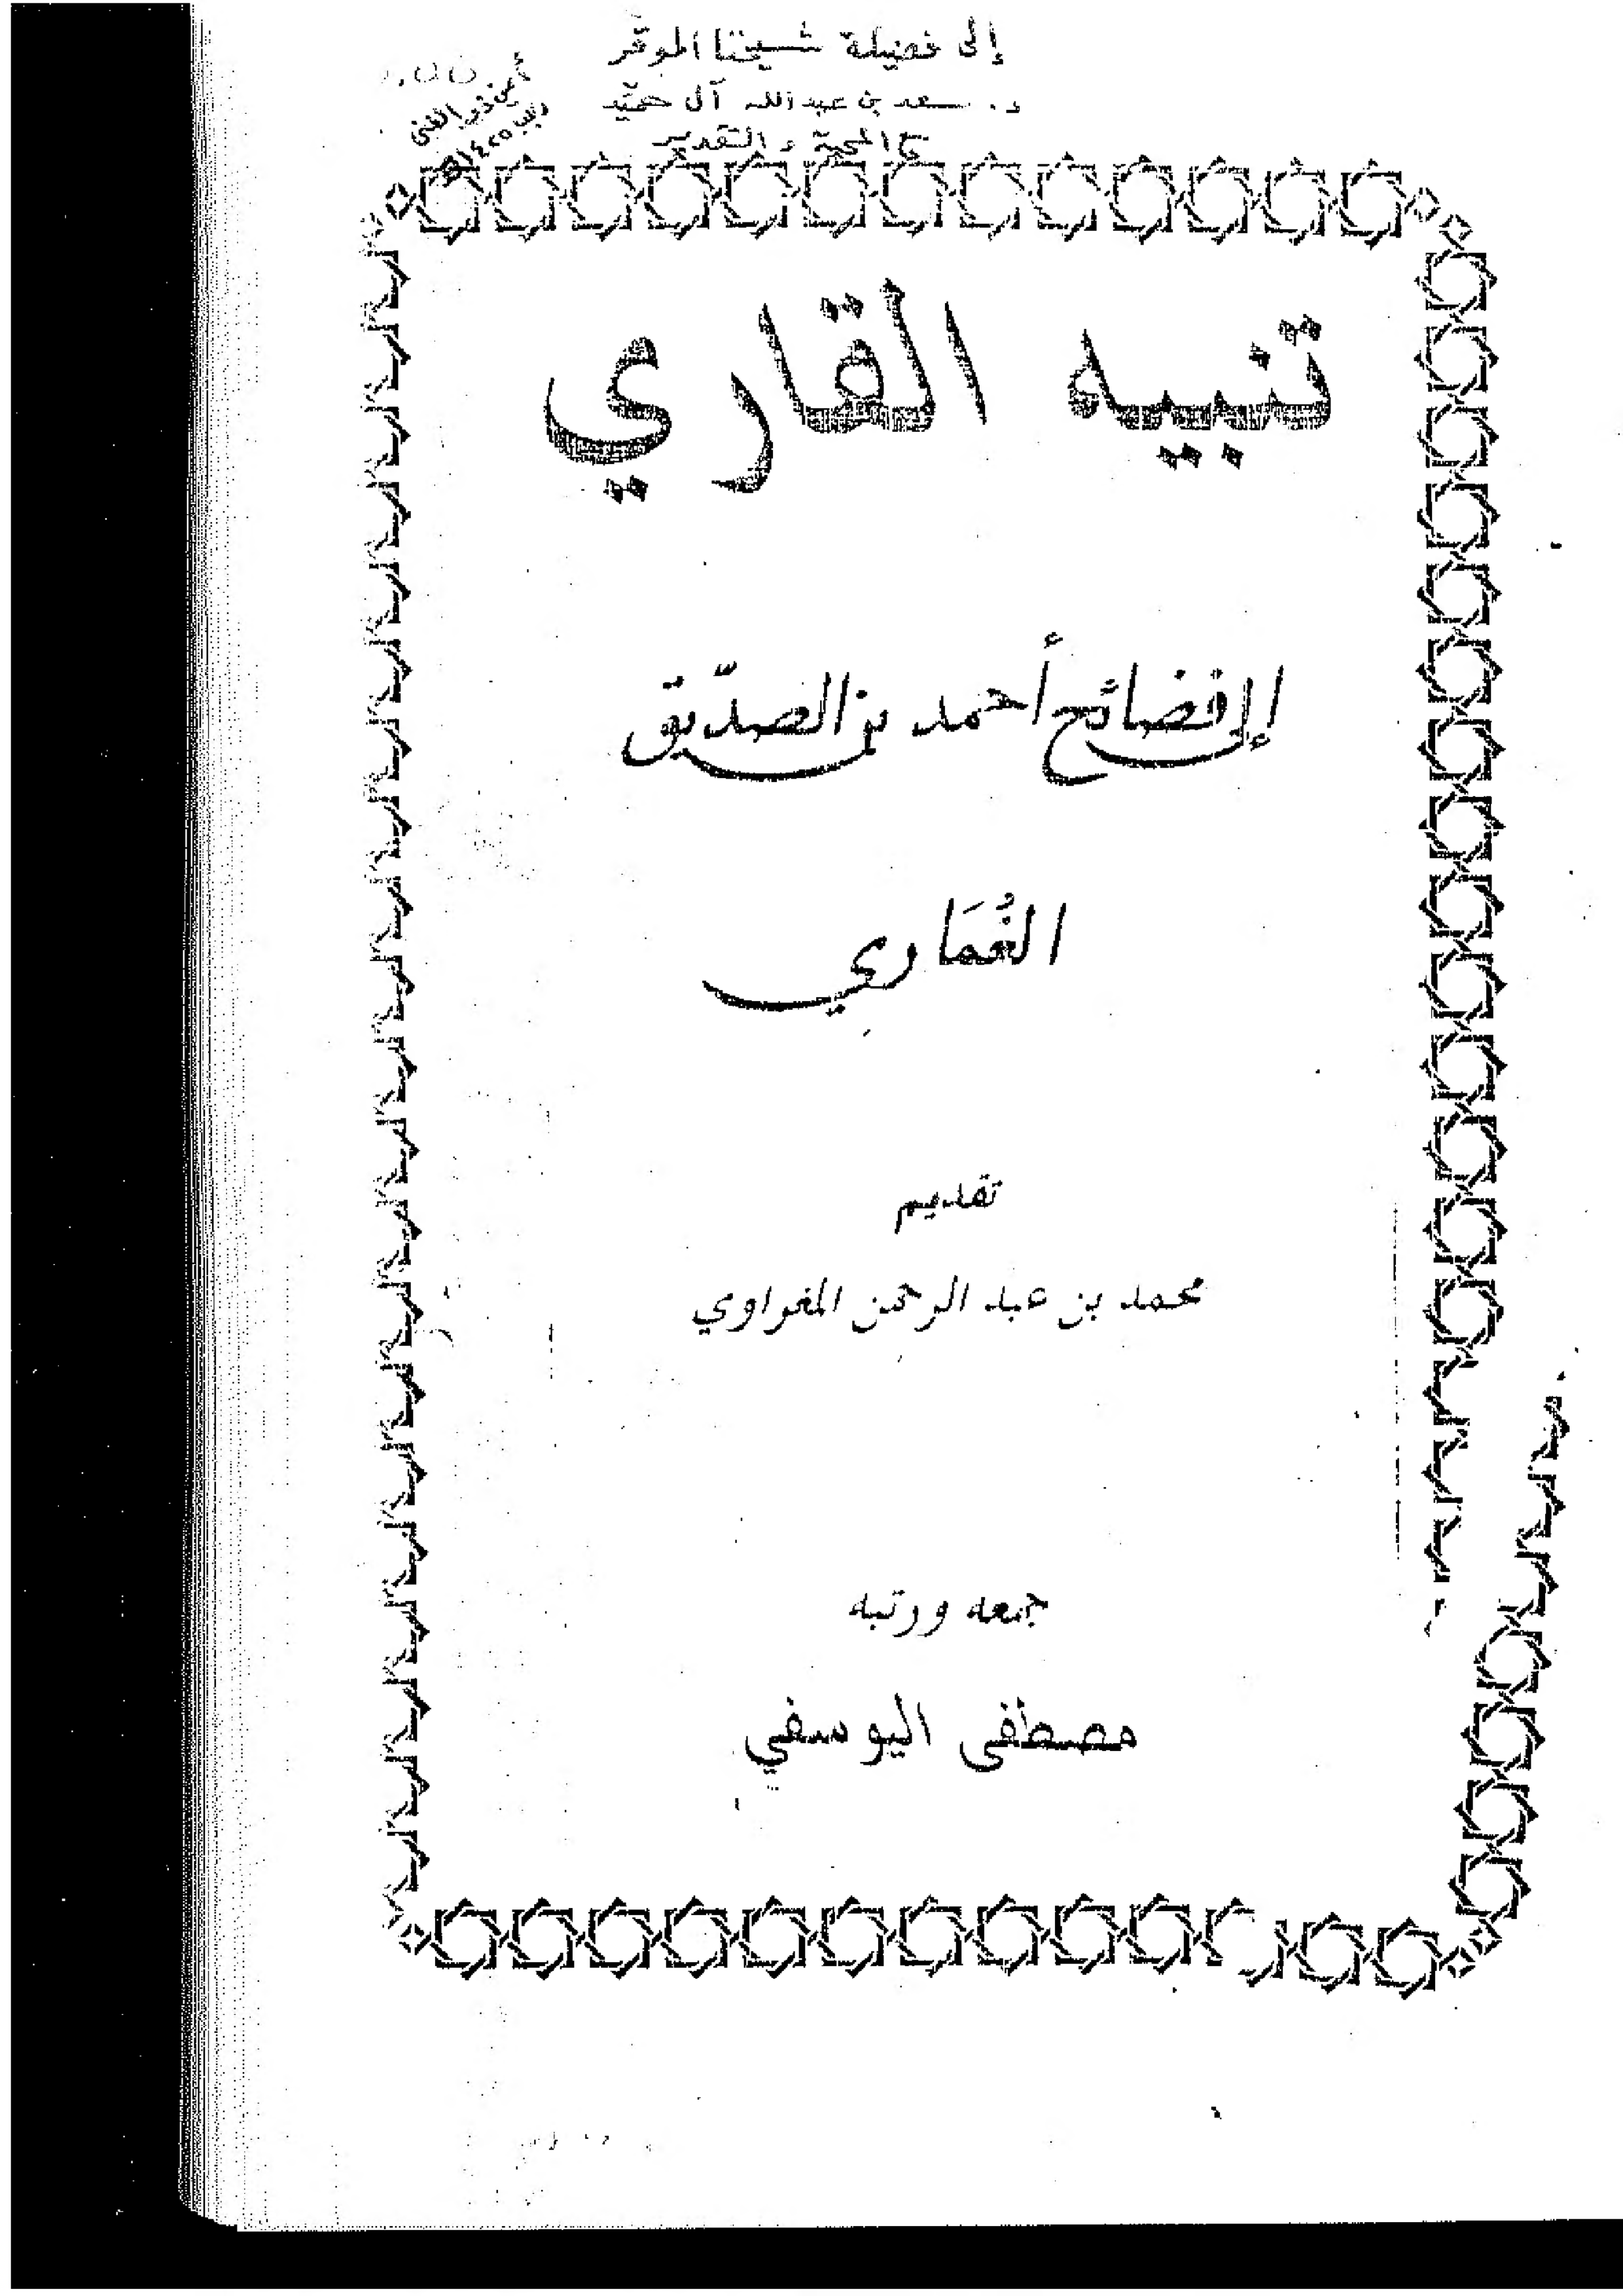 إلى فضيلة شيخنا الموقر
د. سعد بن عبدالله آل حميّد
مع المحبة والتقدير
أيمن ذو الغنى
تنبيه القاري
إلى فضائح أحمد بن الصدّيق
الغُمَاري
تقديم
محمد بن عبد الرحمن المغراوي
جمعه ورتبه
مصطفى اليوسفي